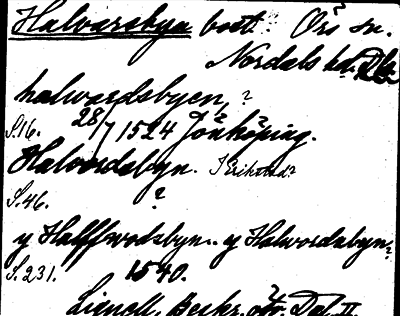 Halvarsbyn bost: Örs sn.
Nordals hd. Dls
halwardsbyen ?
S.16. 28/7 1524 Jönköping.
Halvordsbyn. I Erikstad?
S.46. ?
y Halffwodsbyn. y Halwordsbyn?
S.231. 1540.
Lignell, Beskr. öfv. Dal. II.